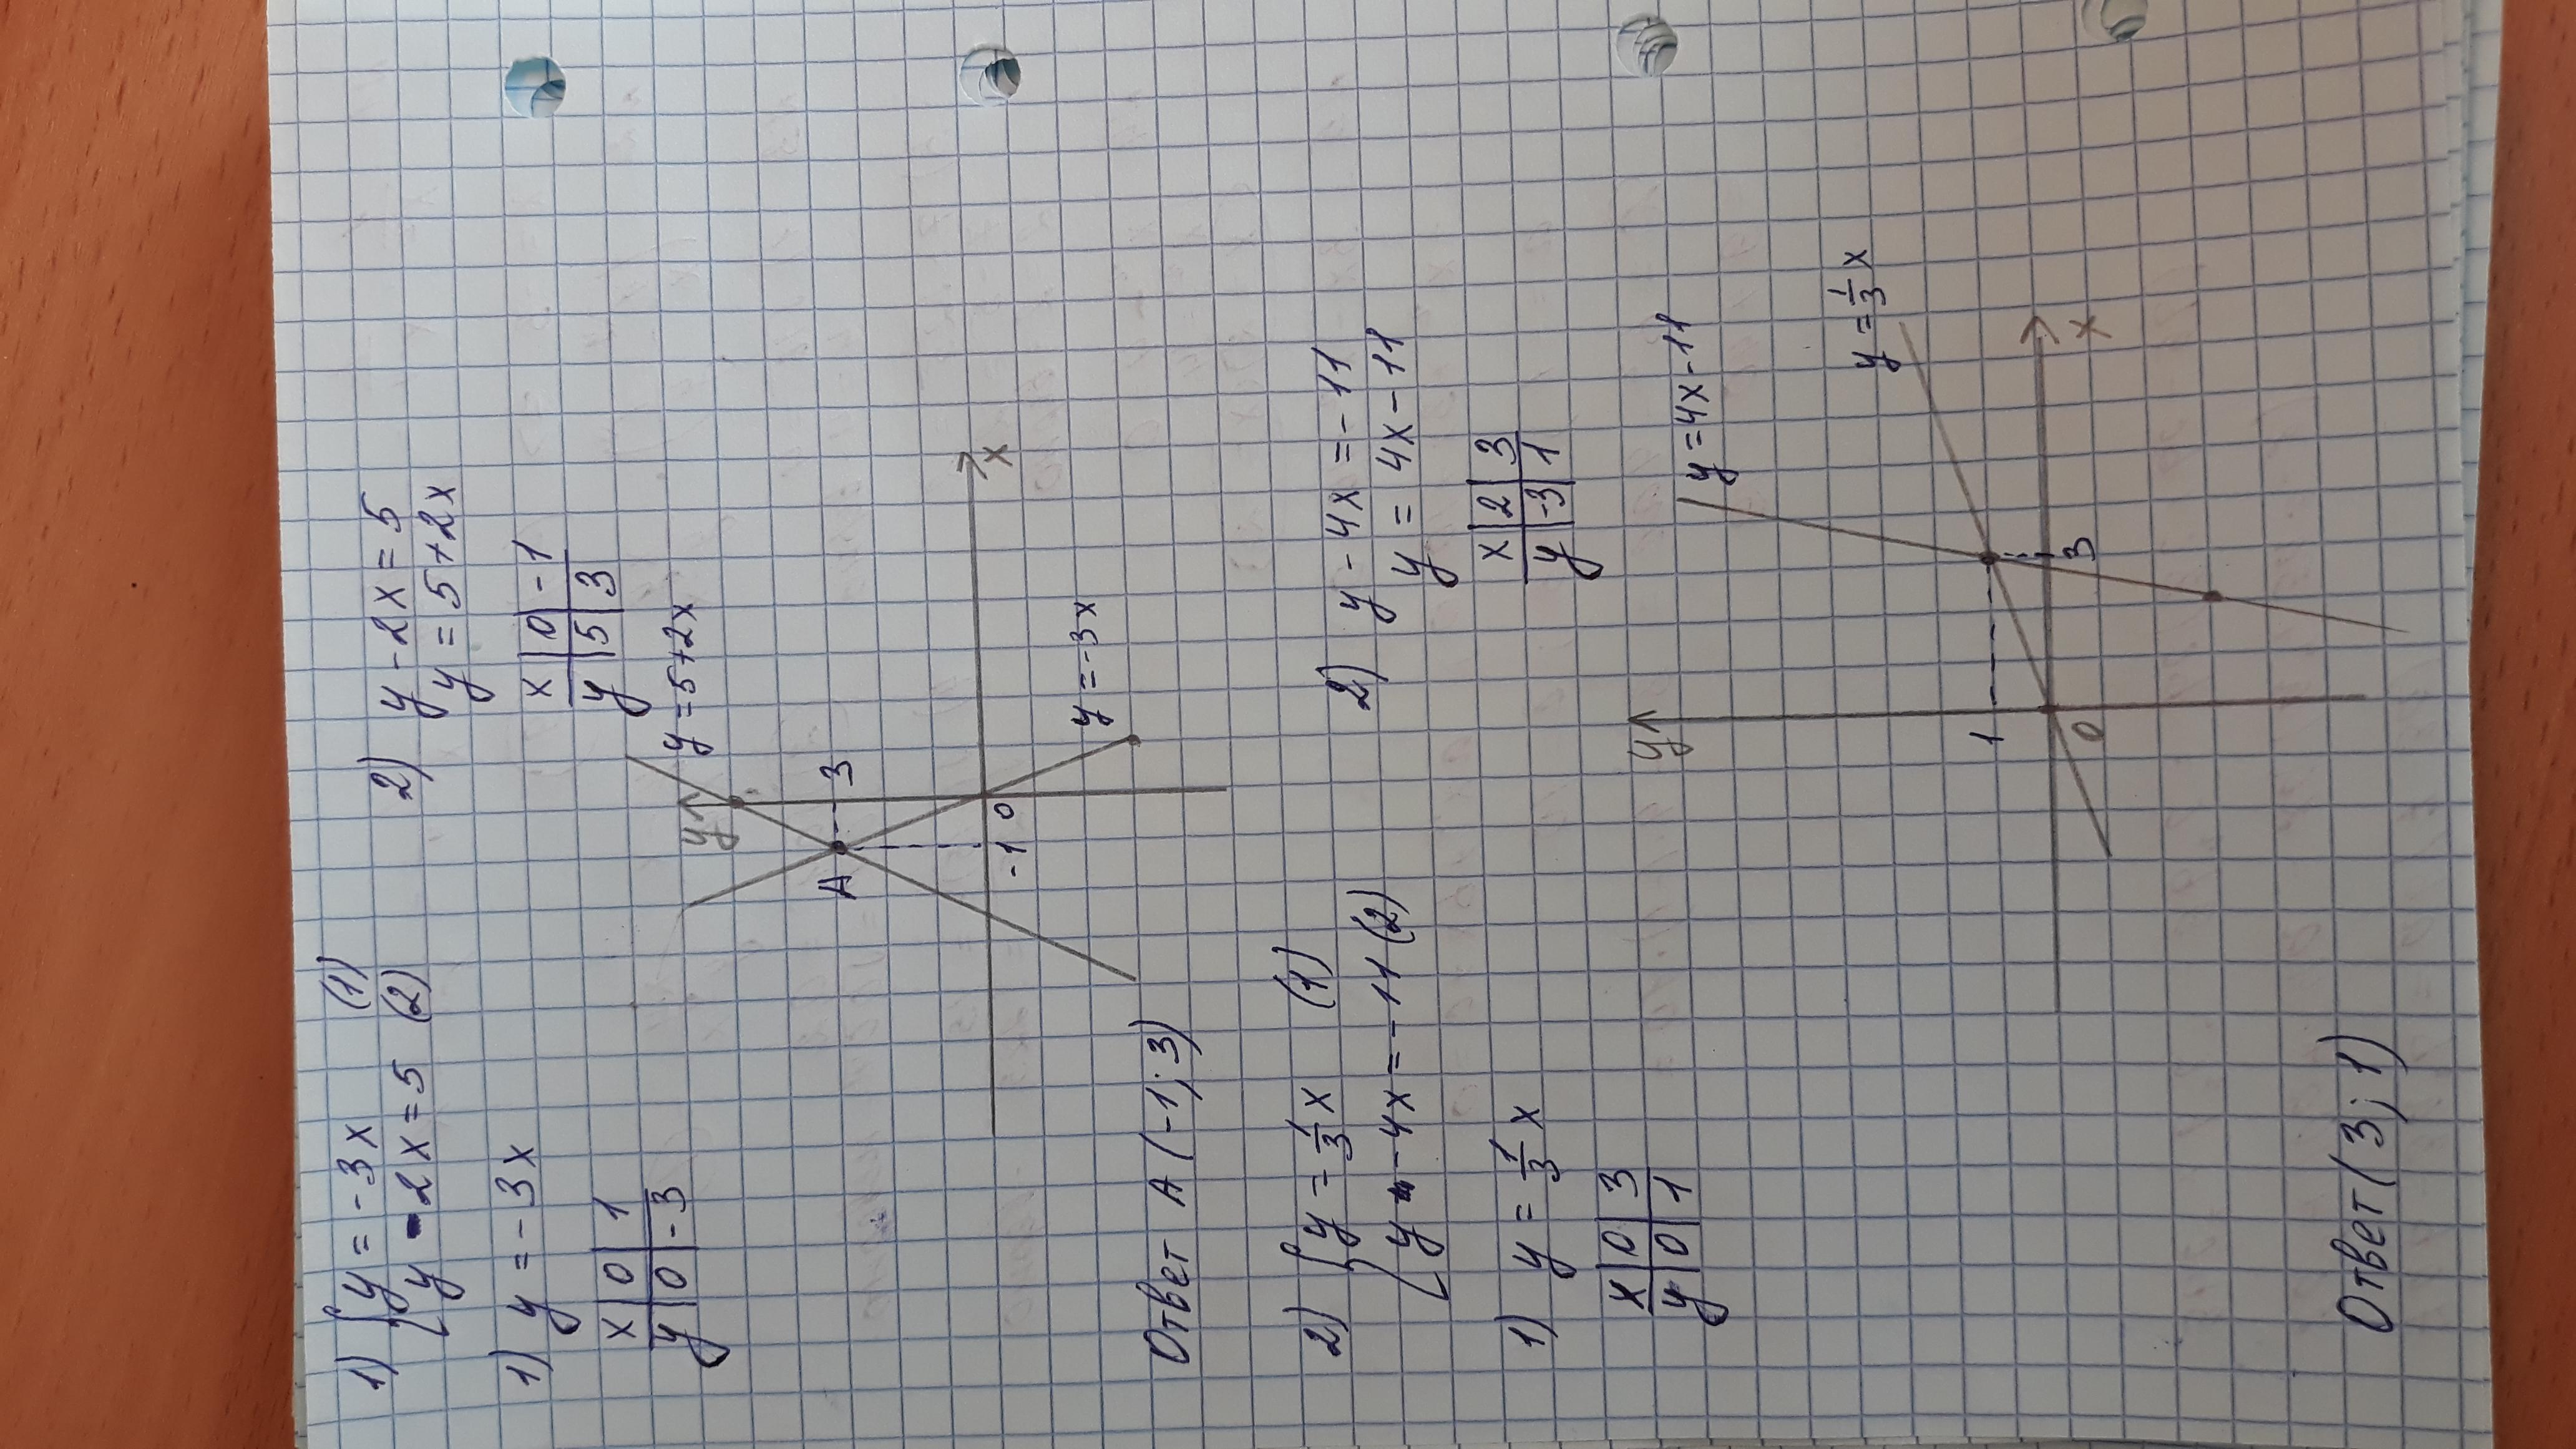 1) { y = -3x (1)
y - 2x = 5 (2)
1) y = -3x
x | 0 | 1
y | 0 | -3
2) y - 2x = 5
y = 5 + 2x
x | 0 | -1
y | 5 | 3
y = 5 + 2x
y
A
3
x
-1 0
y = -3x
Ответ A (-1; 3)
2) { y = 1/3 x (1)
y - 4x = -11 (2)
1) y = 1/3 x
x | 0 | 3
y | 0 | 1
2) y - 4x = -11
y = 4x - 11
x | 2 | 3
y | -3 | 1
y
y = 4x - 11
y = 1/3 x
1
0
3
x
Ответ (3; 1)